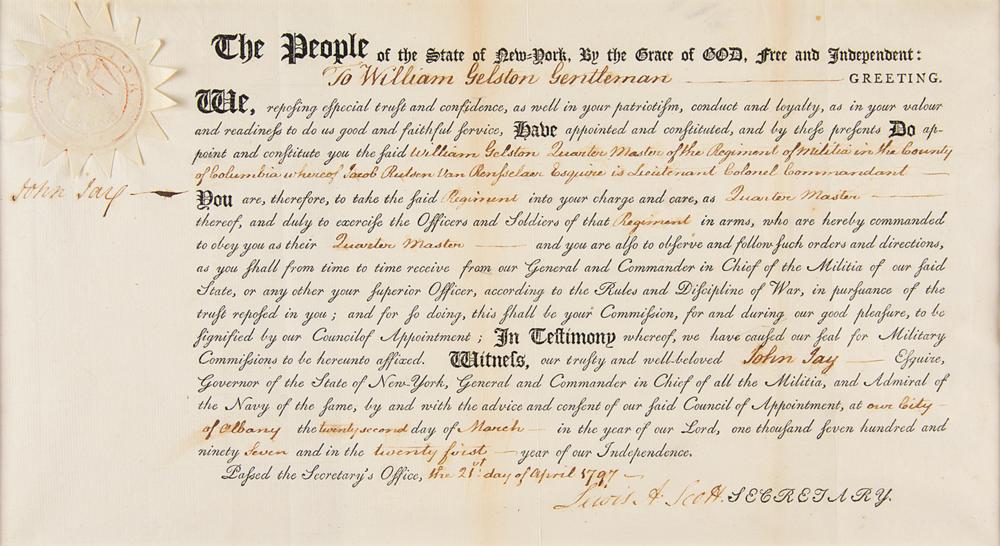 The People of the State of New-York, By the Grace of GOD, Free and Independent:
To William Gelston Gentleman GREETING.
We, repoſing eſpecial truſt and confidence, as well in your patriotiſm, conduct and loyalty, as in your valour
and readineſs to do us good and faithful ſervice, Have appointed and conſtituted, and by theſe preſents Do ap-
point and conſtitute you the ſaid William Gelston Quarter Master of the Regiment of Militia in the County
of Columbia whereof Jacob Rutsen Van Renſselaer Esquire is Lieutenant Colonel Commandant
John Jay
You are, therefore, to take the ſaid Regiment into your charge and care, as Quarter Master
thereof, and duly to exerciſe the Officers and Soldiers of that Regiment in arms, who are hereby commanded
to obey you as their Quarter Master and you are alſo to obſerve and follow ſuch orders and directions,
as you ſhall from time to time receive from our General and Commander in Chief of the Militia of our ſaid
State, or any other your ſuperior Officer, according to the Rules and Diſcipline of War, in purſuance of the
truſt repoſed in you; and for ſo doing, this ſhall be your Commiſſion, for and during our good pleaſure, to be
ſignified by our Council of Appointment; In Teſtimony whereof, we have cauſed our ſeal for Military
Commiſſions to be hereunto affixed. Witneſs, our truſty and well-beloved John Jay Eſquire,
Governor of the State of New-York, General and Commander in Chief of all the Militia, and Admiral of
the Navy of the ſame, by and with the advice and conſent of our ſaid Council of Appointment, at our City
of Albany the twenty second day of March in the year of our Lord, one thouſand ſeven hundred and
ninety Seven and in the twenty first year of our Independence.
Paſſed the Secretary's Office, the 21st day of April 1797
Lewis A. Scott. SECRETARY.